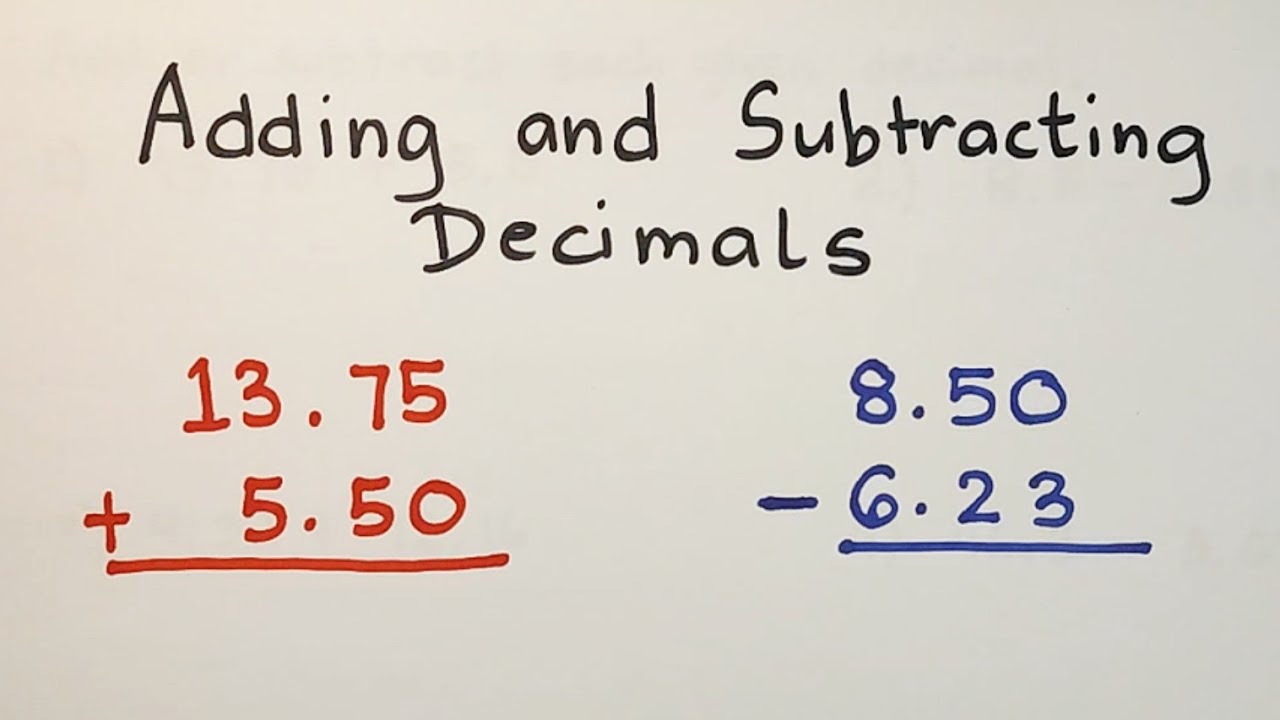 Adding and Subtracting
Decimals
13.75 8.50
+ 5.50 - 6.23